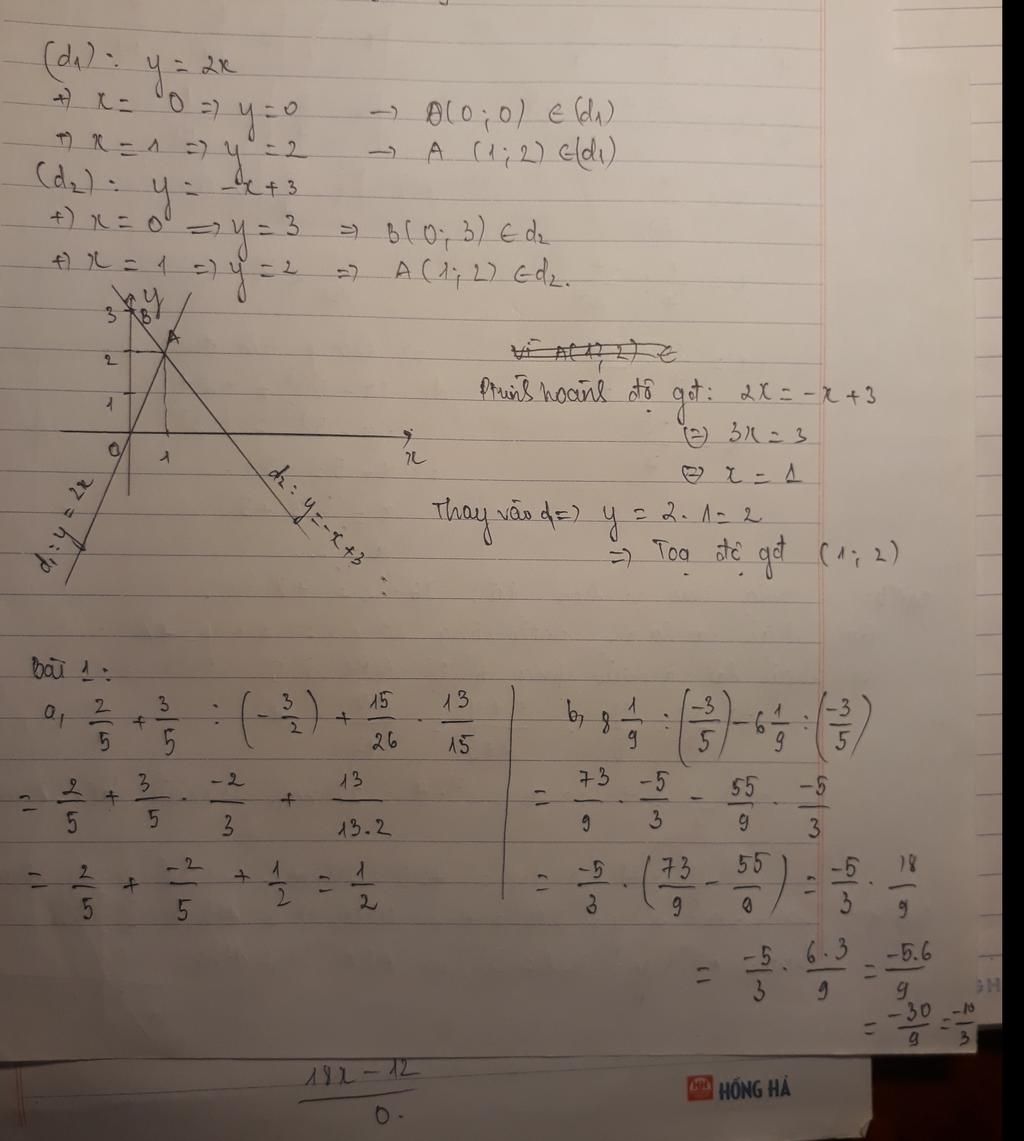 (d1): y = 2x
+) x = 0 => y = 0 → O(0; 0) ∈ (d1)
+) x = 1 => y = 2 → A (1; 2) ∈ (d1)
(d2): y = -x + 3
+) x = 0 => y = 3 => B(0; 3) ∈ d2
+) x = 1 => y = 2 => A(1; 2) ∈ d2.
y
3 B
A
2
1
O 1 x
d1: y = 2x
d2: y = -x + 3
Vì A(1; 2) ∈
hoành độ gđ: 2x = -x + 3
<=> 3x = 3
<=> x = 1
Thay vào d => y = 2. 1 = 2
=> Toạ độ gđ (1; 2)
:
Bài 1:
a, 2/5 + 3/5 : (-3/2) + 15/26 . 13/15
= 2/5 + 3/5 . -2/3 + 13/13.2
= 2/5 + -2/5 + 1/2 = 1/2
b, 8 1/9 : (-3/5) - 6 1/9 : (-3/5)
= 73/9 . -5/3 - 55/9 . -5/3
= -5/3 . (73/9 - 55/9) = -5/3 . 18/9
= -5/3 . 6.3/9 = -5.6/9
= -30/9 = -10/3
18x - 12
HH HỒNG HÀ